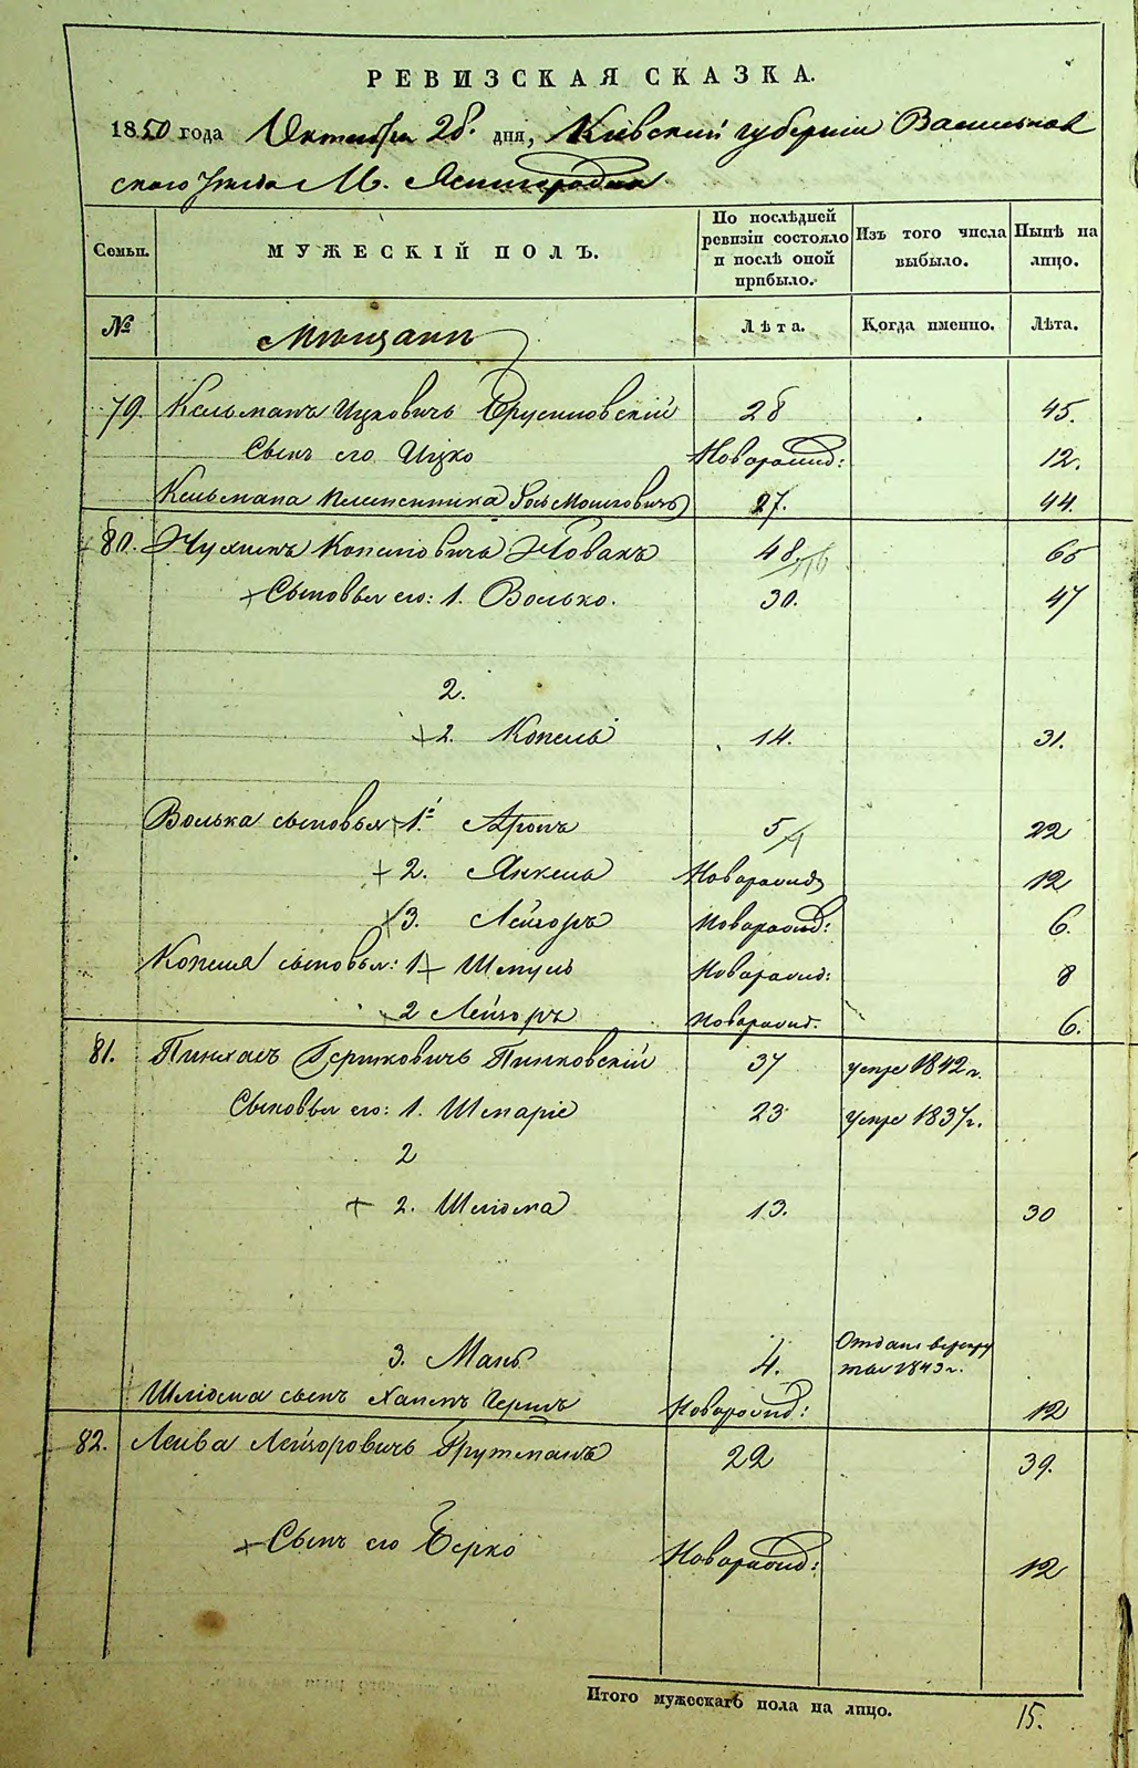 РЕВИЗСКАЯ СКАЗКА.
1850 года Октября 26. дня, Кіевской губерніи Васильков
скаго уѣзда М. Ясногородка
Семьи. МУЖЕСКІЙ ПОЛЪ. По послѣдней ревизіи состояло и послѣ оной прибыло. Изъ того числа выбыло. Нынѣ на лицо.
№ Мѣщанъ Лѣта. Когда именно. Лѣта.
79. Кельманъ Ицковичъ Брусиловскій 28 45.
Сынъ его Ицко Новорожд: 12.
Кельмана племенника Мошковичъ 27. 44.
80. Нухимъ Копиловичъ Новакъ 48. 65
Сыновья его: 1. Волько. 30. 47
2.
2. Копель 14. 31.
Волька сыновья 1. Аронъ 5 22
2. Янкель Новорожд 12
3. Лейзоръ Новорожд: 6.
Копеля сыновья: 1 Шмуль Новорожд: 8
2 Лейзоръ Новорожд. 6.
81. Пинхасъ Гершковичъ Пинковскій 37 умре 1842 г.
Сыновья его: 1. Шмаріе 23 умре 1837 г.
2
2. Шліома 13. 30
3. Мань 4. Отданъ в рекру
ты 1843 г.
Шліома сынъ Хаимъ Новорожд: 12
82. Лейба Лейзоровичъ Грутманъ 22 39.
Сынъ его Берко Новорожд: 12
Итого мужескаго пола на лицо. 15.